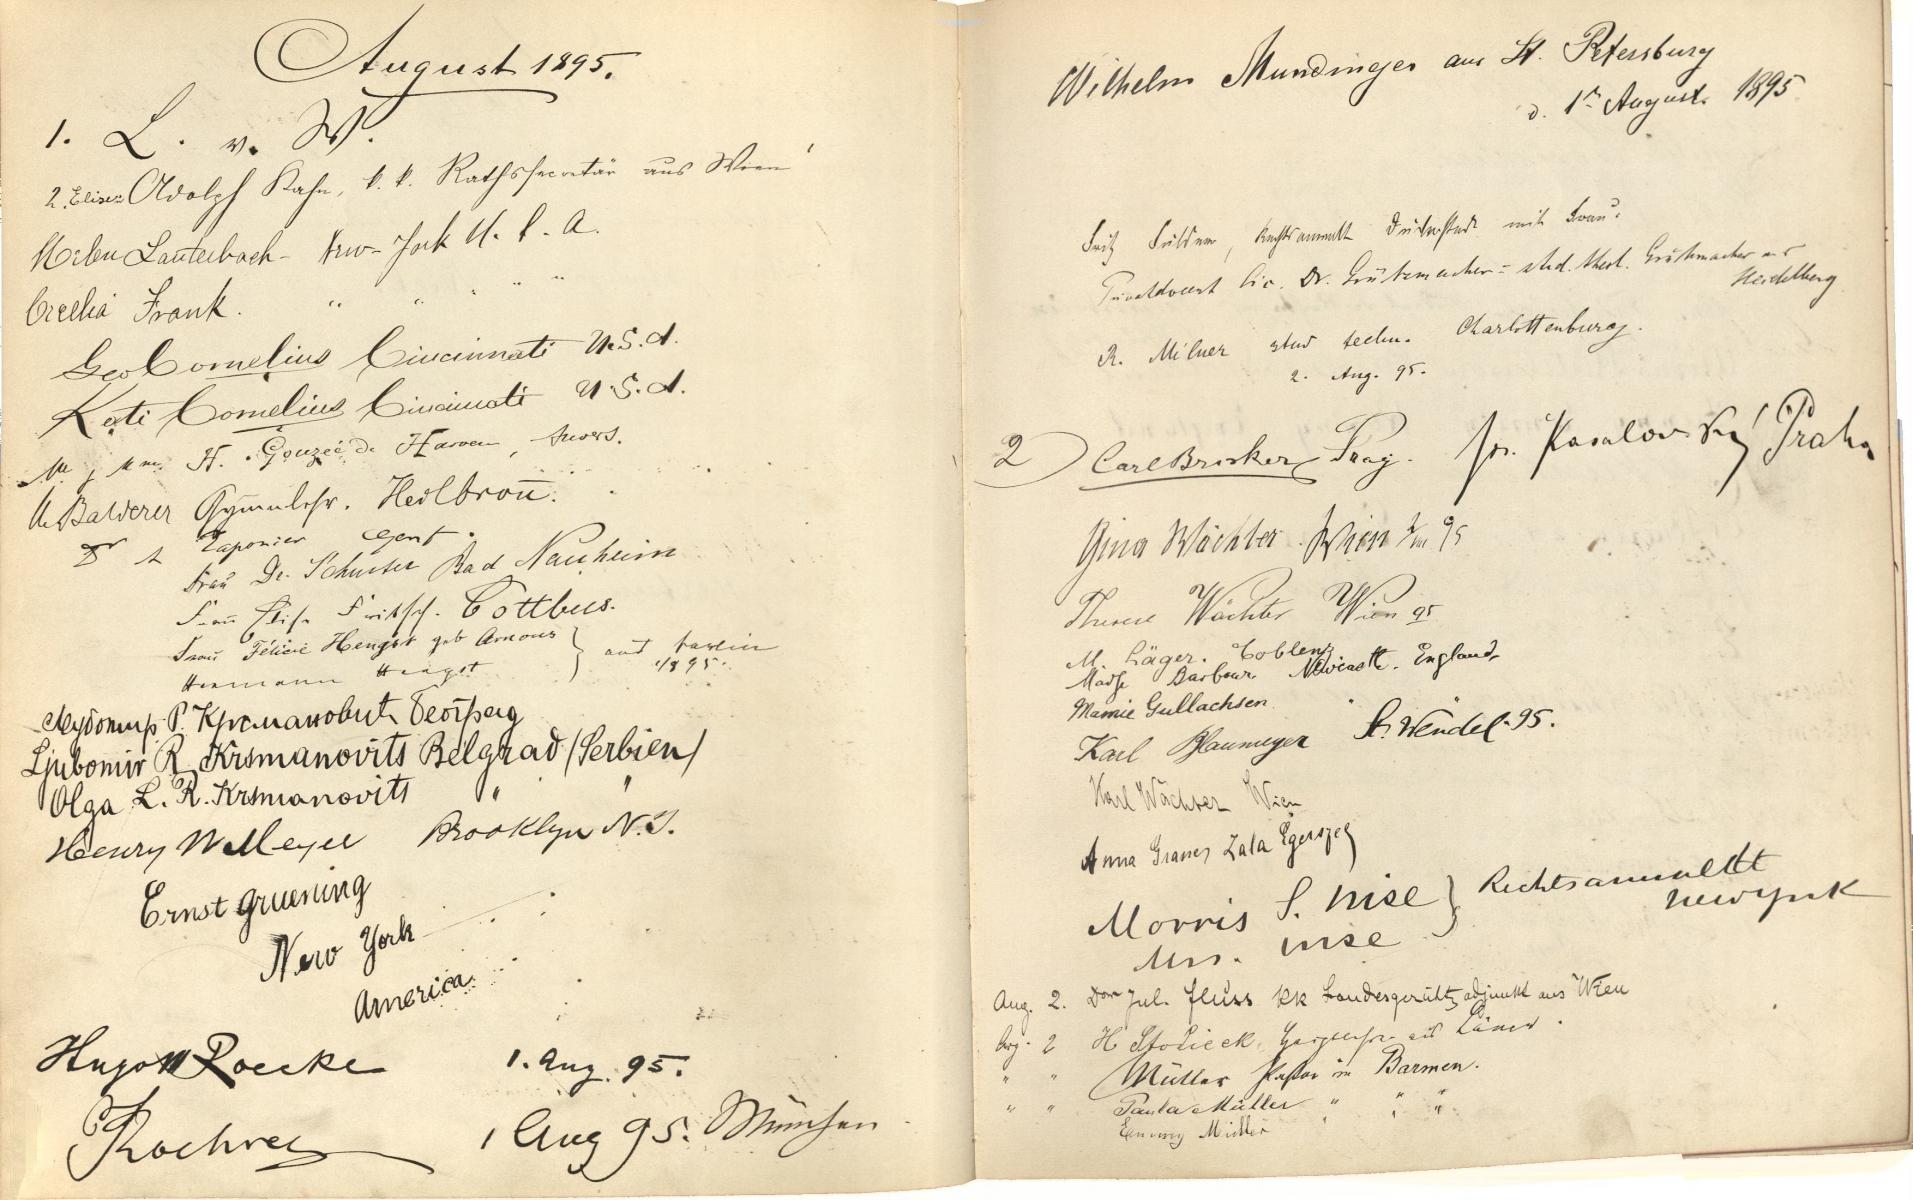 August 1895.
1. L. v. W.
2. Elise u. Adolph Kahn, k. k. Rathssecretär aus Wien
Helen Lauterbach - New-York U. S. A.
Cecelia Frank. " " " " "
Geo Cornelius Cincinnati U.S.A.
Kati Cornelius Cincinnati U.S.A.
M. & Mme H. Gouzée de Harven, Anvers.
Balderer Gymnlehr. Heilbronn.
Dr A Laponier Gent.
Frau Dr. Schuster Bad Nauheim
Frau Elise Fritsch. Cottbus.
Frau Félicie Hengst geb Arnous } aus Berlin
Hermann Hengst 1/8 95.
Љубомир Р. Крсмановић Београд
Ljubomir R. Krsmanovits Belgrad (Serbien)
Olga L. R. Krsmanovits " "
Henry W Meyer Brooklyn N.Y.
Ernst Gruening
New York
America.
Hugo Roecke 1. Aug. 95.
1 Aug 95. München
Wilhelm Mundinger aus St. Petersburg
d. 1ten August. 1895
Fritz, Rechtsanwalt mit Frau.
Privatdocent Lic. Dr. Grützmacher - stud. theol. Grützmacher aus
Heidelberg
R. Milner stud techn. Charlottenburg.
2. Aug. 95.
2) Carl Brisker Prag. Jos. Kasalovský Praha
Gina Wächter Wien 2/VIII 95
Therese Wächter Wien 95
M. Läger. Coblenz
Madge Barbour. Newcastle. England.
Mamie Gullachsen "
Karl Blaumeyer St. Wendel. 95.
Karl Wächter Wien
Anna Zala Egerszeg
Morris S. Wise } Rechtsanwaldt
Mrs. Wise New York
Aug. 2. Dor Jul. Fluss kk Landesgerichtsadjunkt aus Wien
Aug. 2 H Stolieck aus
" " Müller Pastor in Barmen.
" " Paula Müller " " "
Emmy Müller